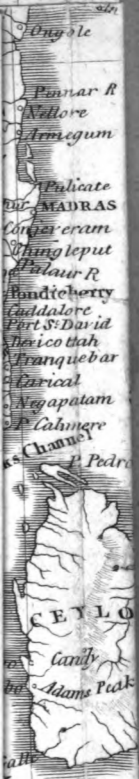 Ongole
Pinnar R
Nellore
Armegum
Pulicate
MADRAS
Conjereram
Chingleput
Palaur R
Pondicherry
Cuddalore
Fort St. David
Devicottah
Tranquebar
Carical
Negapatam
P. Calymere
ks Channel
P. Pedr
CEYLO
Candy
Adams Peak
alle